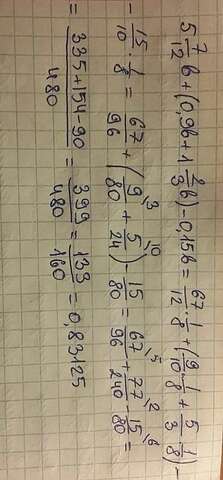 5 7/12 b + (0,9b + 1 2/3 b) - 0,15b = 67/12 · 1/8 + (9/10 · 1/8 + 5/3 · 1/8) -
- 15/10 · 1/8 = 67/96 + (9/80 + 5/24) - 15/80 = 67/96 + 77/240 - 15/80 =
= 335+154-90/480 = 399/480 = 133/160 = 0,83125